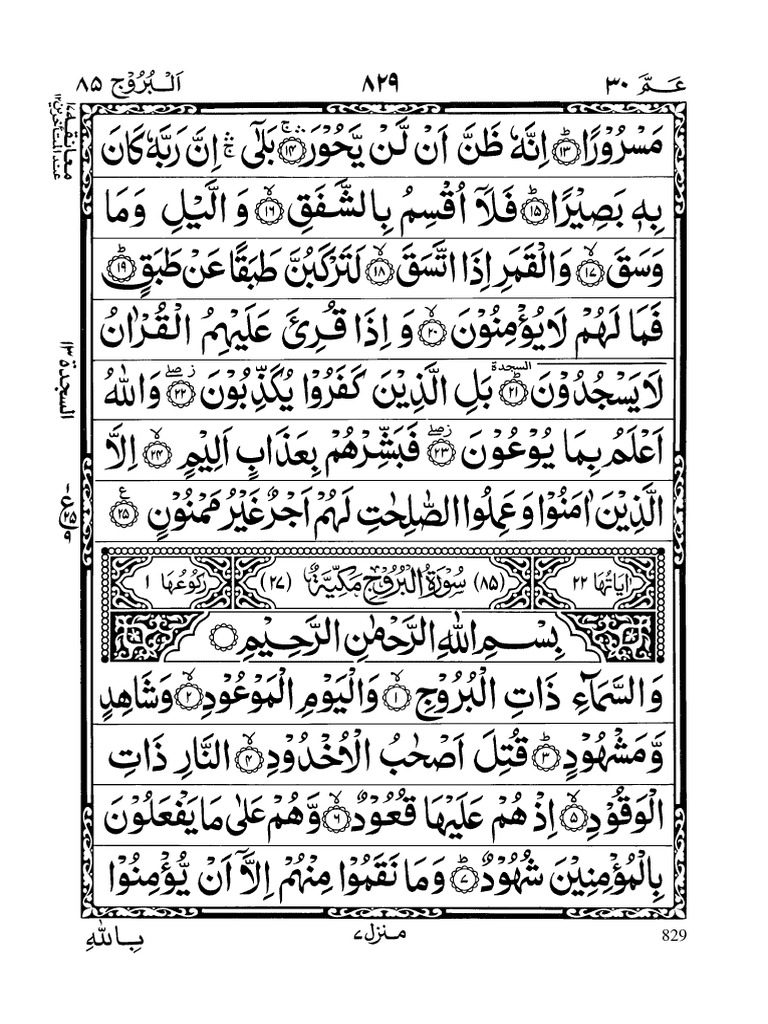 عَمَّ ٣٠
٨٢٩
اَلْبُرُوْج ٨٥
مَسْرُوْرًا ؕ۝١٣ اِنَّهٗ ظَنَّ اَنْ لَّنْ يَّحُوْرَ ۛۚ۝١٤ بَلٰۤى ۛۚ اِنَّ رَبَّهٗ كَانَ
معانقة ١٧
عند المتأخرين ١٢
بِهٖ بَصِيْرًا ؕ۝١٥ فَلَاۤ اُقْسِمُ بِالشَّفَقِ ۙ۝١٦ وَ الَّيْلِ وَمَا
وَسَقَ ۙ۝١٧ وَالْقَمَرِ اِذَا اتَّسَقَ ۙ۝١٨ لَتَرْكَبُنَّ طَبَقًا عَنْ طَبَقٍ ؕ۝١٩
فَمَا لَهُمْ لَا يُؤْمِنُوْنَ ۙ۝٢٠ وَ اِذَا قُرِئَ عَلَيْهِمُ الْقُرْاٰنُ
السجدة ١٣
لَا يَسْجُدُوْنَ السجدة ؕ۝٢١ بَلِ الَّذِيْنَ كَفَرُوْا يُكَذِّبُوْنَ ز صلے ۝٢٢ وَاللّٰهُ
اَعْلَمُ بِمَا يُوْعُوْنَ ز صلے ۝٢٣ فَبَشِّرْهُمْ بِعَذَابٍ اَلِيْمٍ ۙ۝٢٤ اِلَّا
الَّذِيْنَ اٰمَنُوْا وَ عَمِلُوا الصّٰلِحٰتِ لَهُمْ اَجْرٌ غَيْرُ مَمْنُوْنٍ ع ۝٢٥
اٰيَاتُهَا ٢٢
(٨٥) سُوْرَةُ الْبُرُوْجِ مَكِّيَّةٌ (٢٧)
رُكُوْعُهَا ١
بِسْمِ اللّٰهِ الرَّحْمٰنِ الرَّحِيْمِ ۝
وَالسَّمَآءِ ذَاتِ الْبُرُوْجِ ۙ۝١ وَالْيَوْمِ الْمَوْعُوْدِ ۙ۝٢ وَشَاهِدٍ
وَّمَشْهُوْدٍ ؕ۝٣ قُتِلَ اَصْحٰبُ الْاُخْدُوْدِ ۙ۝٤ النَّارِ ذَاتِ
الْوَقُوْدِ ۙ۝٥ اِذْ هُمْ عَلَيْهَا قُعُوْدٌ ۙ۝٦ وَّهُمْ عَلٰى مَا يَفْعَلُوْنَ
بِالْمُؤْمِنِيْنَ شُهُوْدٌ ؕ۝٧ وَمَا نَقَمُوْا مِنْهُمْ اِلَّاۤ اَنْ يُّؤْمِنُوْا
829
منزل ٧
بِاللّٰهِ